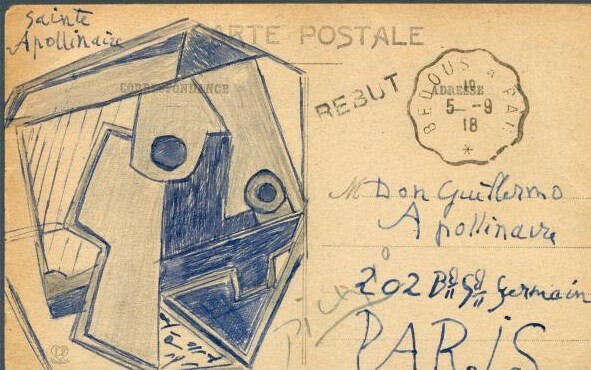 Sainte
Apollinaire
CARTE POSTALE
CORRESPONDANCE
REBUT
BEDOUS A PAU
ADRESSE
19
5 -9
18
M Don Guillermo
Apollinaire
202 Bd St Germain
PARIS
Picasso